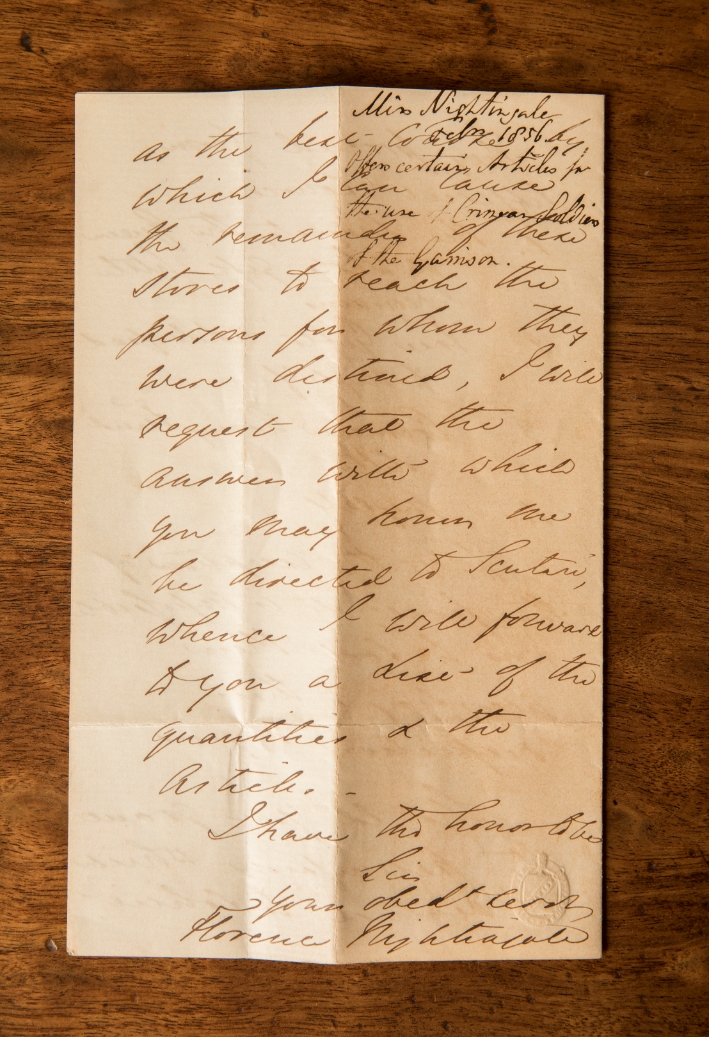 Miss Nightingale
Feby 1856
Offers certain Articles for
the use of Crimean Soldiers
of the Garrison.
as the best course by
which I can cause
the remainder of these
stores to reach the
persons for whom they
were destined, I will
request that the
answer with which
you may honor me
be directed to Scutari,
whence I will forward
to you a List of the
quantities & the
Articles.-
I have the honor to be
Sir
your obedt servt
Florence Nightingale